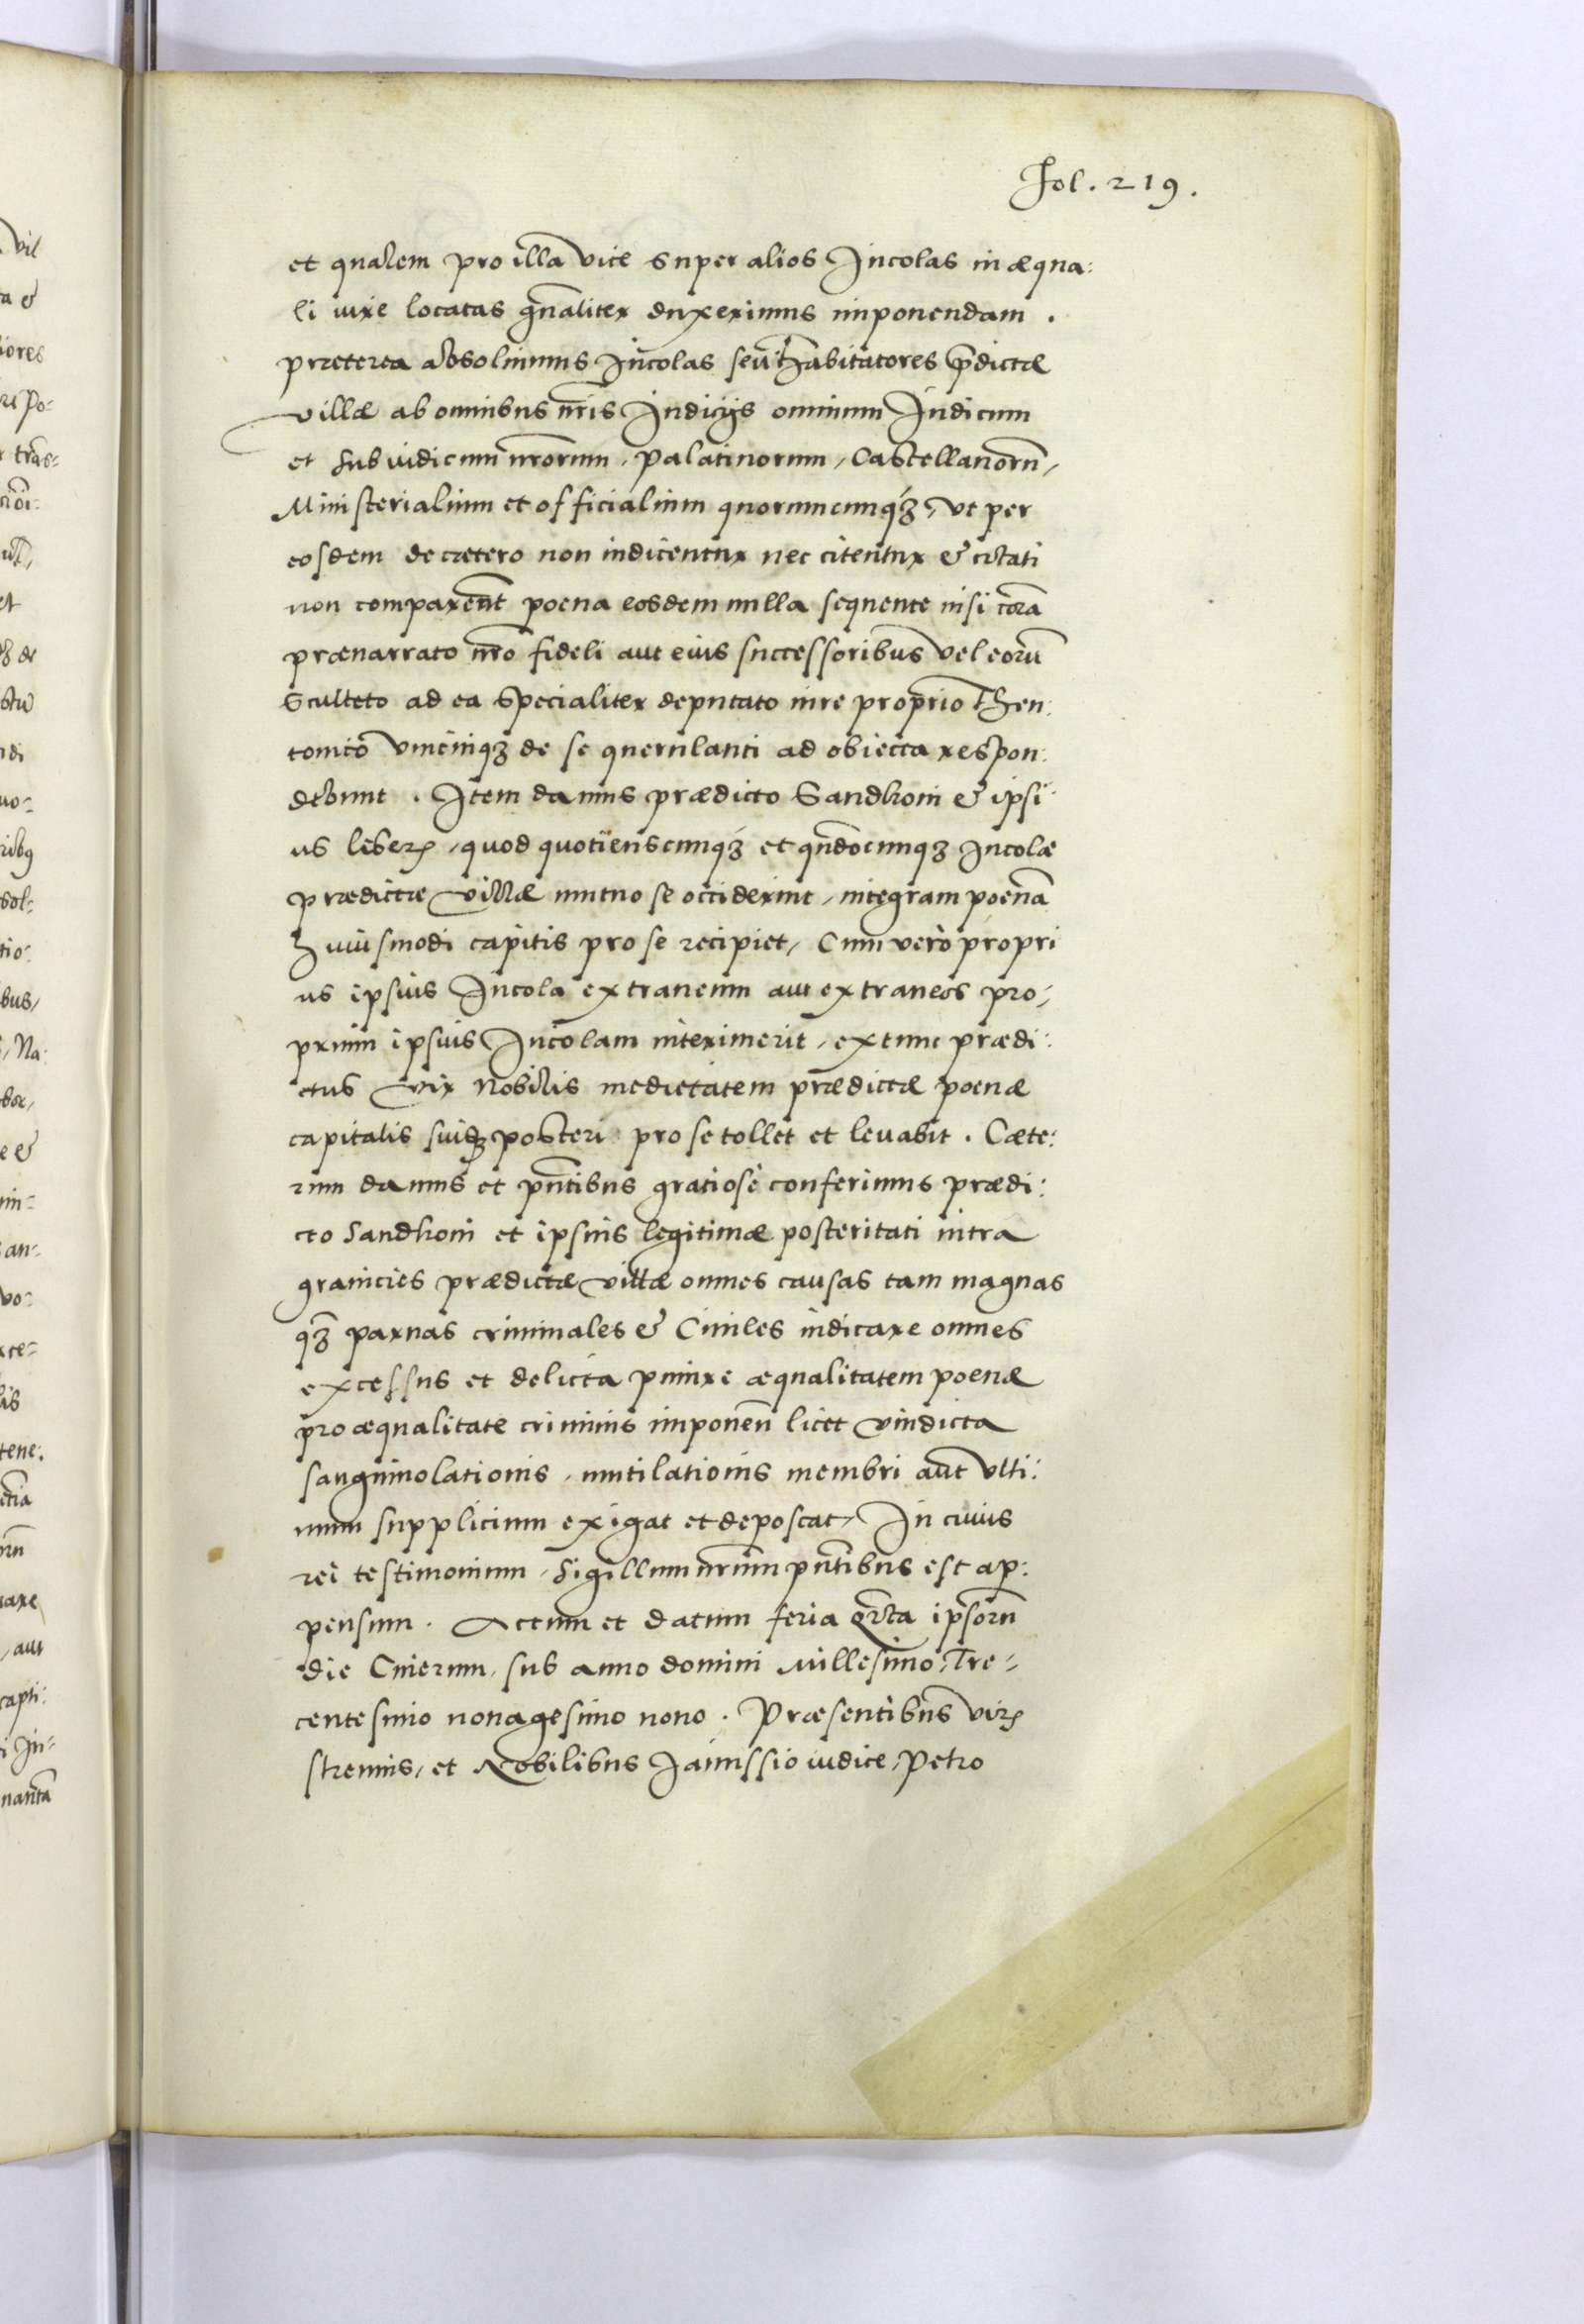 Fol. 219.
et qualem pro illa vice super alios Incolas in æqua:
li iure locatas gn̄aliter duxerimus imponendam.
præterea absoluimus Incolas seu Inhabitatores p̄dictæ
villæ ab omnibus nr̄is Iudicijs omnium Iudicum
et subiudicum nrōrum, Palatinorum, Castellanorū,
Ministerialium et officialium quorumcunqȝ, vt per
eosdem de cætero non iudicentur nec citentur & citati
non comparent poena eosdem nulla sequente nisi corā
prænarrato nrō fideli aut eius successoribus vel eorū
Sculteto ad ea specialiter deputato iure proprio Theu:
tonico vnicuiqȝ de se querulanti ad obiecta respon:
debunt. Item damus prædicto Sandkoni & ipsi
us liberis, quod quotienscunqȝ et qn̄documqȝ Incolæ
prædictæ villæ mutuo se occiderint, integram poenā
huiusmodi capitis pro se recipiet, Cum verò propri
us ipsius Incola extraneum aut extraneus pro,
prium ipsius Incolam interimerit, extunc prædi:
ctus vir Nobilis medietatem prædictæ poenæ
capitalis suiqȝ posteri pro se tollet et levabit. Cæte:
rum damus et pn̄tibus gratiosè conferimus prædi:
cto Sandkoni et ipsius legitimæ posteritati intra
granicies prædictæ villæ omnes causas tam magnas
qȝ paruas criminales & Ciuiles iudicare omnes
excessus et delicta punire æqualitatem poenæ
pro æqualitate criminis imponen̄ licet vindicta
sanguinolationis, mutilationis membri aut vlti:
mum supplicium exigat et deposcat, In cuius
rei testimonium, Sigillum nrūm pn̄tibus est ap:
pensum. Actum et datum feria Qr̄ta ipsorū
die Cinerum, sub anno domini Millesimo, Tre,
centesimo nonagesimo nono. Præsentibus viris
strenuis, et Nobilibus Janussio iudice, Petro